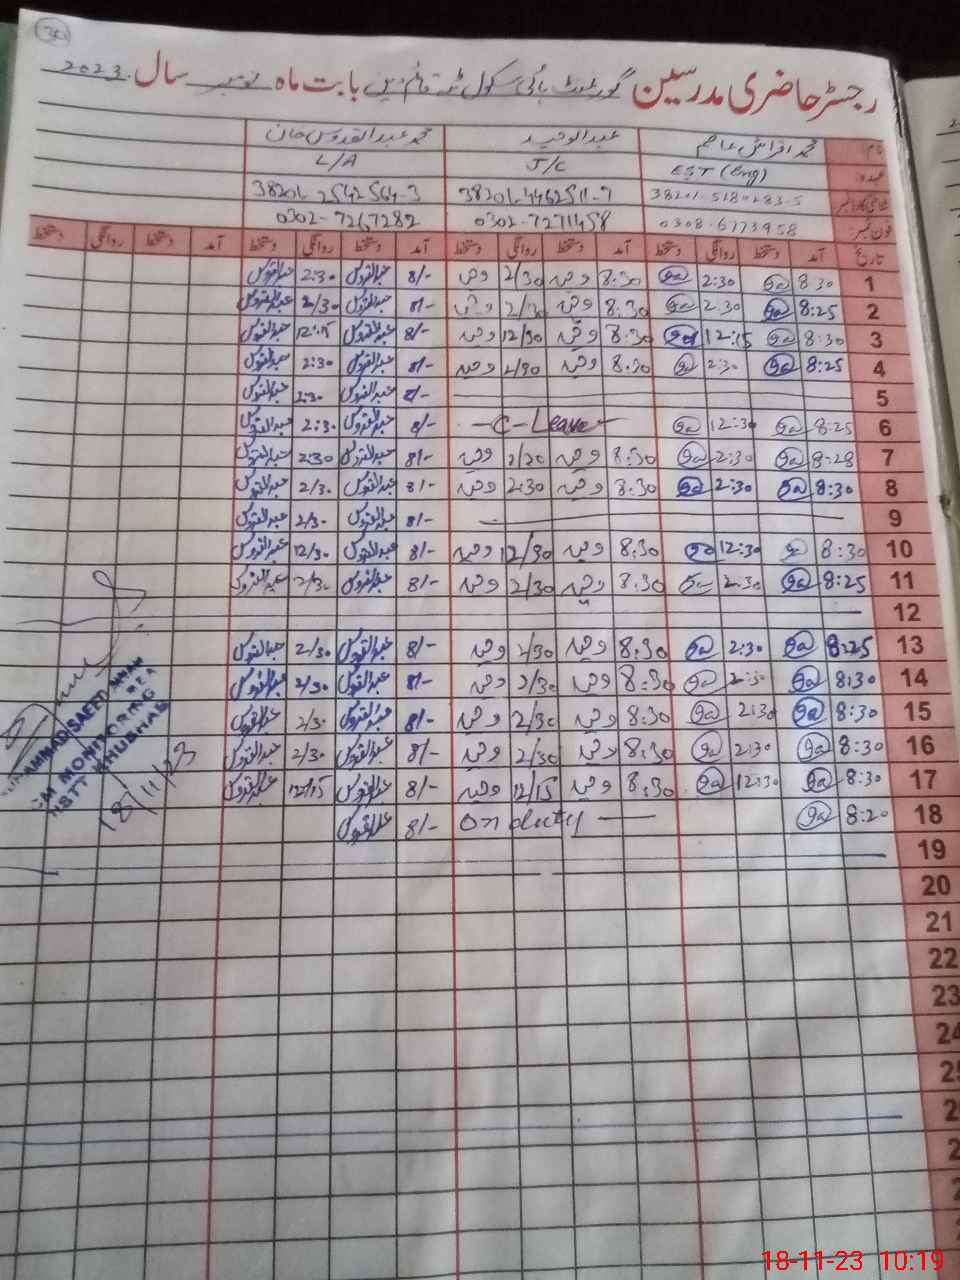 30
رجسٹر حاضری مدرسین گورنمنٹ ہائی سکول بابت ماہ نومبر سال 2023
نام: محمد عاصم عبدالوحید محمد عبدالقدوس خان
عہدہ: EST (Eng) J/C L/A
شناختی کارڈ نمبر 38201-5180283-5 38201-4462511-9 38201-2542564-3
فون نمبر: 0308-6773958 0302-7271458 0302-7267282
تاریخ آمد دستخط روانگی دستخط آمد دستخط روانگی دستخط آمد دستخط روانگی دستخط آمد دستخط روانگی دستخط
1 8:30 2:30 8:30 وحید 2/30 وحید 8/- عبدالقدوس 2:30 عبدالقدوس
2 8:25 2:30 8:30 وحید 2/30 وحید 8/- عبدالقدوس 2/30 عبدالقدوس
3 8:30 12:15 8:30 وحید 12/30 وحید 8/- عبدالقدوس 12:15 عبدالقدوس
4 8:25 2:30 8:30 وحید 2/30 وحید 8/- عبدالقدوس 2:30 عبدالقدوس
5 8/- عبدالقدوس 2:30 عبدالقدوس
6 8:25 12:30 C-Leave 8/- عبدالقدوس 2:30 عبدالقدوس
7 8:28 2:30 8:30 وحید 2/20 وحید 8/- عبدالقدوس 2:30 عبدالقدوس
8 8:30 2:30 8:30 وحید 2:30 وحید 8/- عبدالقدوس 2/30 عبدالقدوس
9 8/- عبدالقدوس 2/30 عبدالقدوس
10 8:30 12:30 8:30 وحید 12/30 وحید 8/- عبدالقدوس 12/30 عبدالقدوس
11 8:25 2:30 8:30 وحید 2/30 وحید 8/- عبدالقدوس 2/30 عبدالقدوس
12
13 8:25 2:30 8:30 وحید 2/30 وحید 8/- عبدالقدوس 2/30 عبدالقدوس
14 8:30 2:30 8:30 وحید 2/30 وحید 8/- عبدالقدوس 2/30 عبدالقدوس
15 8:30 2:30 8:30 وحید 2/30 وحید 8/- عبدالقدوس 2/30 عبدالقدوس
16 8:30 2:30 8:30 وحید 2/30 وحید 8/- عبدالقدوس 2/30 عبدالقدوس
17 8:30 12:30 8:30 وحید 12/15 وحید 8/- عبدالقدوس 12/15 عبدالقدوس
18 8:20 on duty 8/- عبدالقدوس
19
20
21
22
23
24
MONITORING
KHUSHAB
18/11/23
18-11-23 10:19